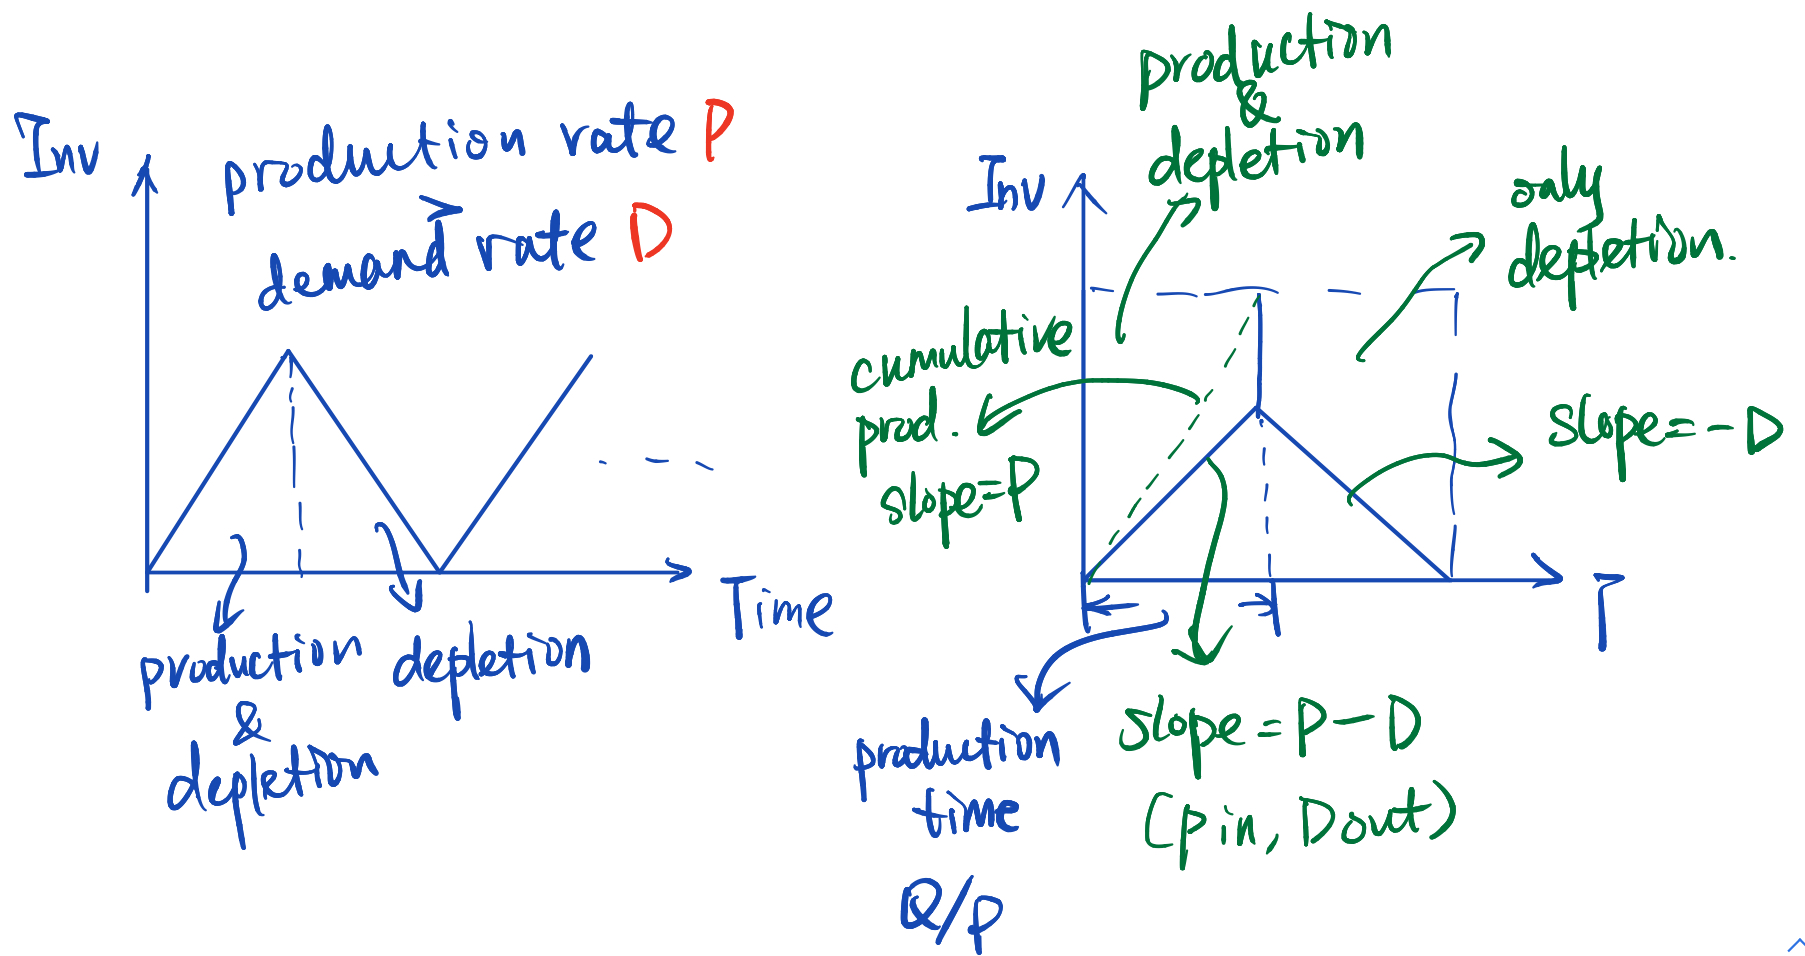 Inv
production rate P
demand rate D
Time
production
&
depletion
depletion
production
&
depletion
Inv
only
depletion.
cumulative
prod.
slope=P
slope=-D
T
production
time
Q/P
slope=P-D
(Pin, Dout)